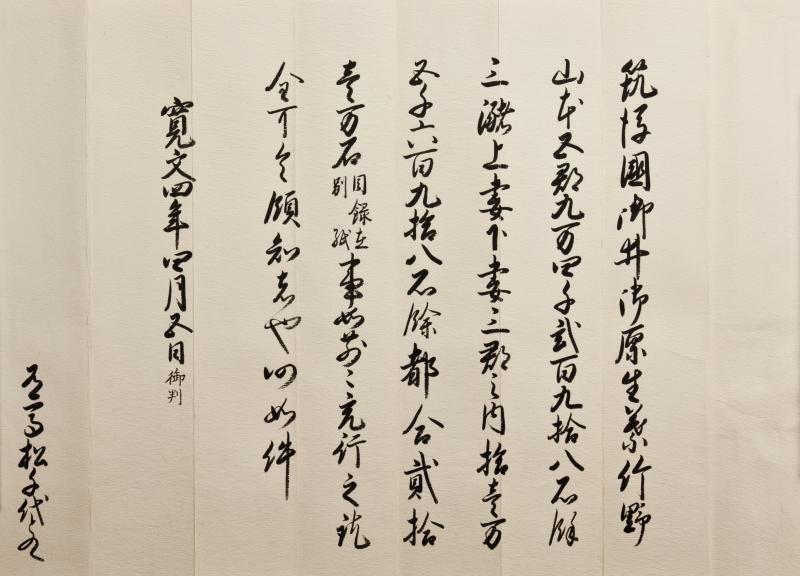 筑後國御井御原生葉竹野
山本五郡九万四千弐百九拾八石餘
三瀦上妻下妻三郡之内拾壱万
五千六百九拾八石餘都合貳拾
壱万石目録在別紙事如前々充行之訖
全可令領知者也仍如件
寛文四年四月五日御判
有馬松千代とのへ